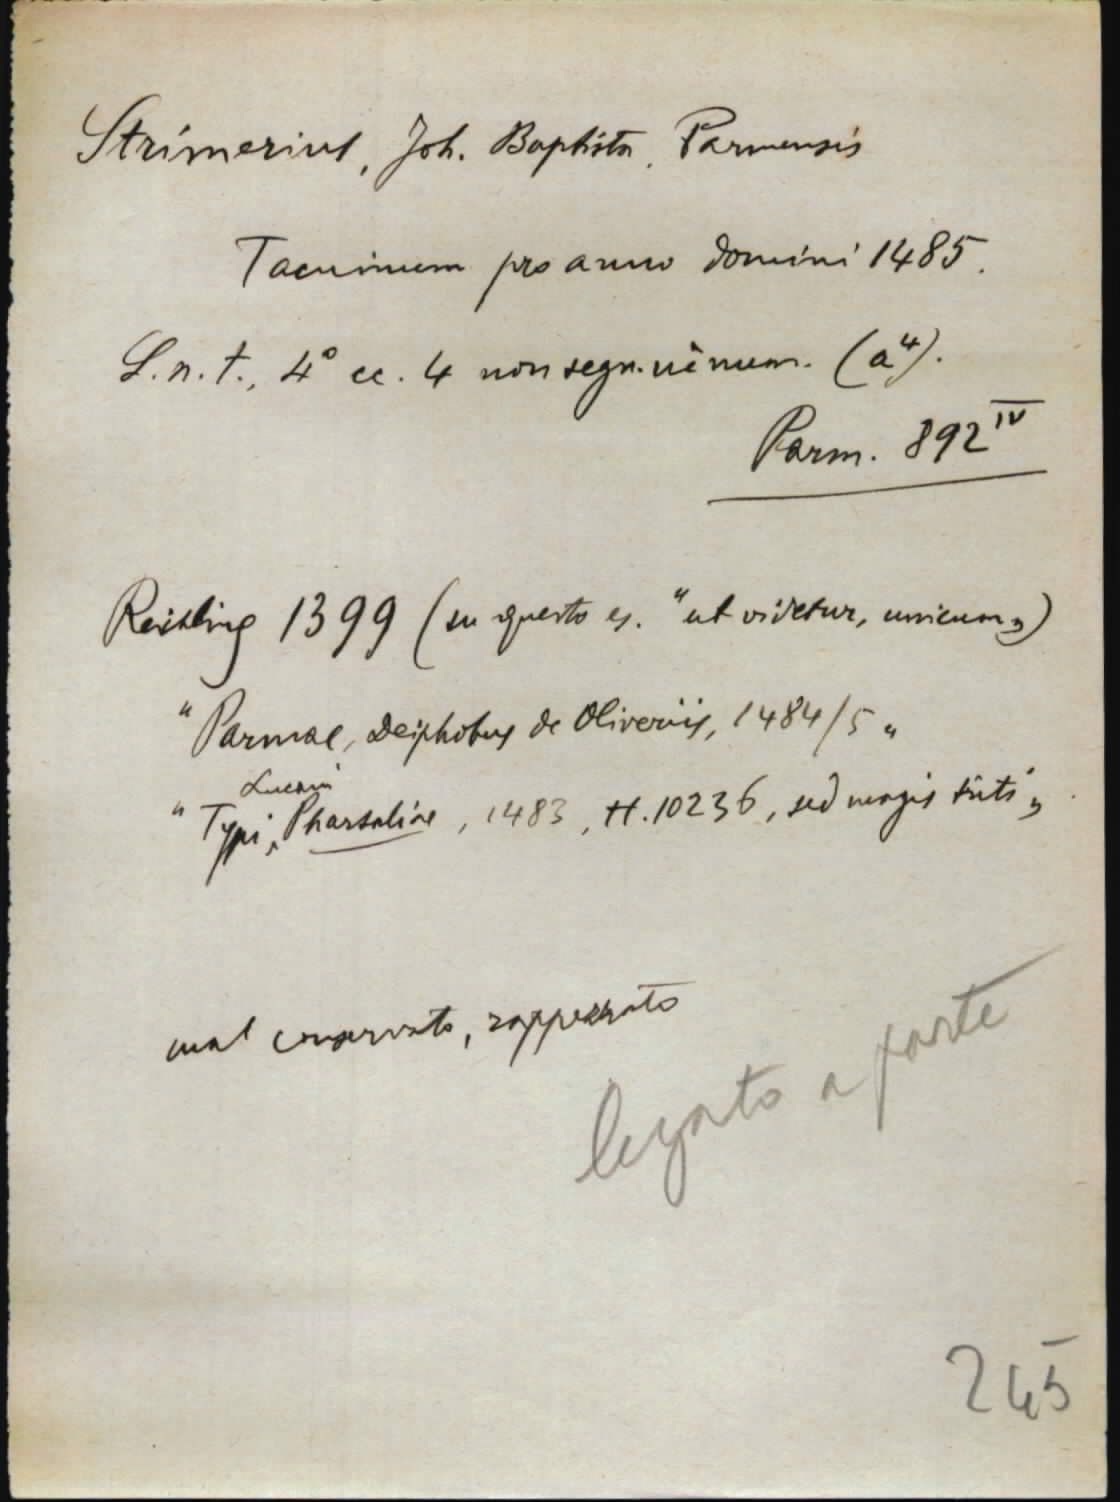 Strimerius, Joh. Baptista, Parmensis
Tacuinum pro anno domini 1485.
S.n.t., 4° cc. 4 non segn. nè num. (a⁴).
Parm. 892 IV
Reichling 1399 (su questo es. "ut videtur, unicum")
"Parmae, Deiphobus de Oliveriis, 1484/5"
"Typi Lucani Pharsaliae, 1483, H. 10236, sed magis triti"
mal conservato, rappezzato
legato a parte
245